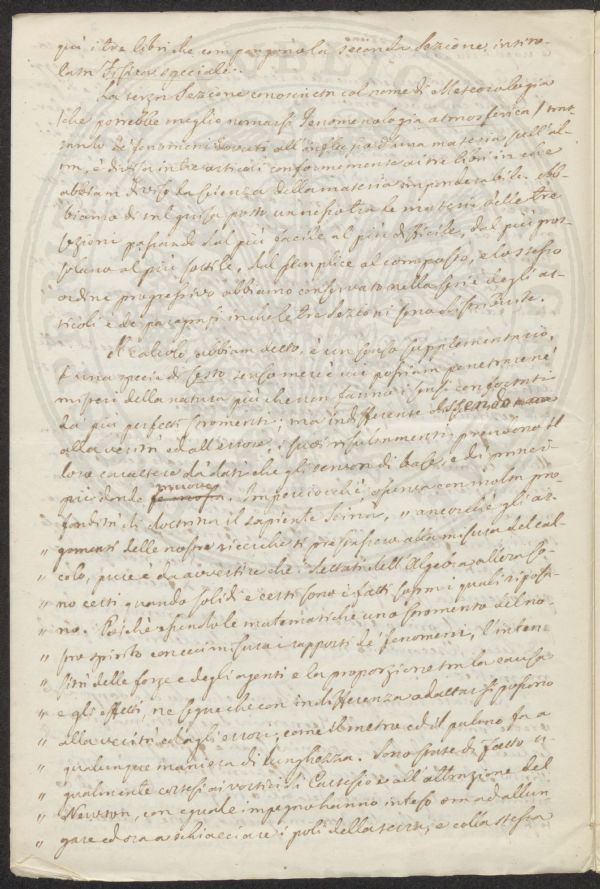 quì i tre libri che compongono la seconda Sezione, intito-
lata Fisica speciale.
La terza Sezione conosciuta col nome di Meteorologia
(che potrebbe meglio nomarsi Fenomenologia atmosferica) trat
tando de' fenomeni dovuti all'influsso d'una materia sull'al-
tra, è divisa in tre articoli conformemente ai tre libri in che
abbiam diviso la scienza della materia imponderabile. Ab-
biamo di tal guisa posto un nesso tra le materie delle tre
sezioni passando dal più facile al più difficile, dal più gros-
solano al più sottile, dal semplice al composto, e lo stesso
ordine progressivo abbiamo conservato nella serie degli ar-
ticoli e de' paragrafi in cui le tre Sezioni sono distribuite.
Il calcolo, abbiam detto, è un senso supplementario,
è una specie di sesto senso mercè cui possiam penetrare ne'
misteri della natura più che non fanno i sensi confortati
da più perfetti stromenti; ma indifferente essendo
alla verità ed all'errore, i suoi risultamenti prendono il
loro carattere da' dati che gli servon di base, e da' princi-
pii donde muove. Imperciocchè, osserva con molta pro-
fondità di dottrina il sapiente Scinà, " ancorchè gli ar-
" gomenti delle nostre ricerche si prestassero alla misura del cal-
" colo, pure è da avvertire che i dettati dell'Algebra allora so-
" no certi quando solidi e certi sono i fatti sopra i quali riposa-
" no. Poichè essendo le matematiche uno stromento del no-
" stro spirito con cui misura i rapporti de' fenomeni, l'inten-
" sità delle forze e degli agenti e la proporzione tra la causa
" e gli effetti, ne segue che con indifferenza adattar si possono
" alla verità ed agli errori, come il metro ed il palmo fa a
" qualunque maniera di lunghezza. Sono state di fatto e-
" gualmente cortesi ai vortici di Cartesio e all'attrazione del
" Newton, con eguale impegno hanno inteso ora ad allun
" gare ed ora a schiacciare i poli della terra, e colla stessa